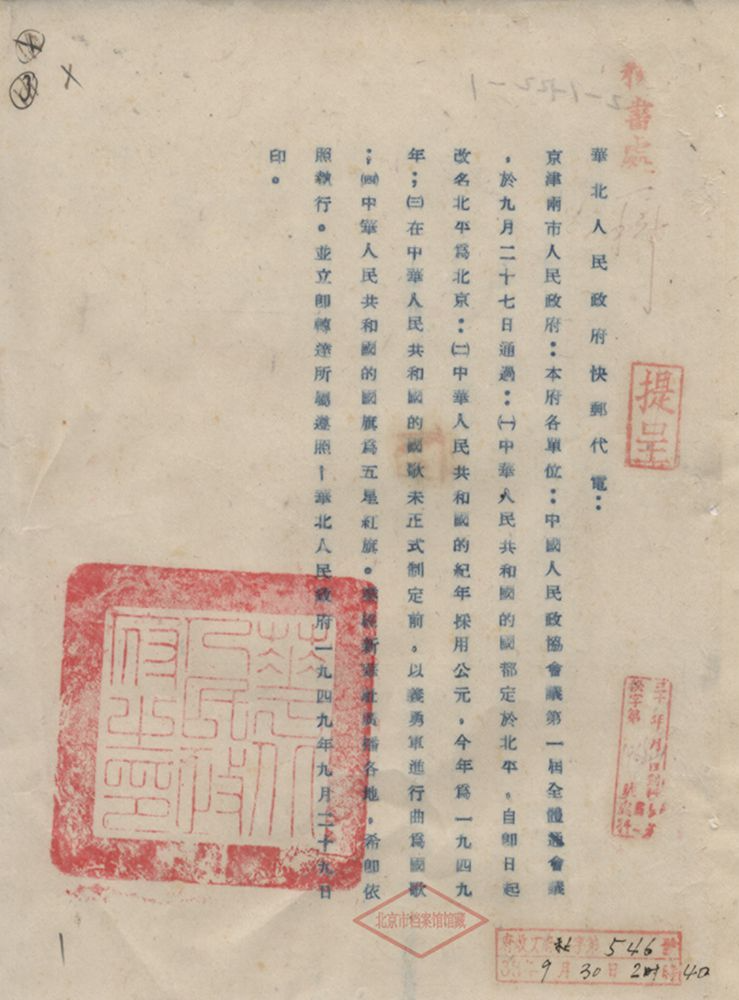 秘書處
提呈
華北人民政府快郵代電：
京津兩市人民政府：本府各單位：中國人民政協會議第一屆全體會議
，於九月二十七日通過：㈠中華人民共和國的國都定於北平。自即日起
改名北平爲北京：㈡中華人民共和國的紀年採用公元，今年爲一九四九
年；㈢在中華人民共和國的國歌未正式制定前。以義勇軍進行曲爲國歌
；㈣中華人民共和國的國旗爲五星紅旗。業經新華社廣播各地，希即依
照執行。並立即轉達所屬遵照－華北人民政府一九四九年九月二十九日
印。
華北人民政府之印
北京市档案馆馆藏
字第546號
9月30日2时40